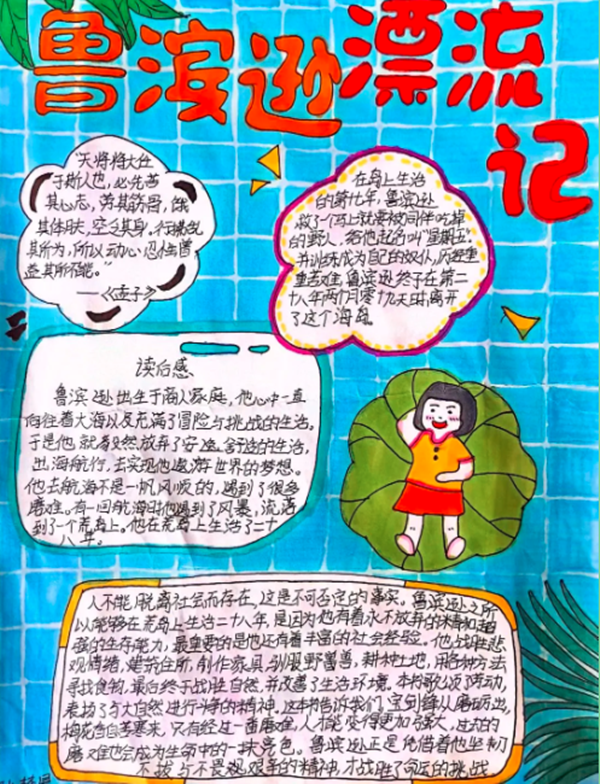 鲁滨逊漂流记
"天将将大任
于斯人也，必先苦
其心志，劳其筋骨，饿
其体肤，空乏其身。行拂乱
其所为，所以动心忍性，曾
益其所不能。"
——《孟子》
在岛上生活
的第十七年，鲁滨逊
救了一个马上就要被同伴吃掉
的野人，给他起名叫"星期五"。
并训练成为自己的奴仆，历经重
重苦难，鲁滨逊终于在第二
十八年两个月零十九天时，离开
了这个海岛。
读后感
鲁滨逊出生于商人家庭，他心中一直
向往着大海以及充满了冒险与挑战的生活。
于是他，就毅然放弃了安逸、舒适的生活，
出海航行，去实现他遨游世界的梦想。
他去航海不是一帆风顺的，遇到了很多
磨难。有一回航海时他遇到了风暴，流落
到了一个荒岛上。他在荒岛上生活了二十
八年。
人不能脱离社会而存在，这是不可否定的事实。鲁滨逊之所
以能够在荒岛上生活二十八年，是因为他有着永不放弃的精神和超
强的生存能力，最重要的是他还有着丰富的社会经验。他战胜悲
观情绪，建筑住所，制作家具，驯服野富兽，耕种土地，用各种方法
寻找食物，最后终于战胜自然，并改善了生活环境。本书歌颂了劳动，
表扬了与大自然进行斗争的精神，这本书告诉我们，宝剑锋从磨砺出，
梅花香自苦寒来，只有经过一番磨难，人才能变得更加强大，过去的
磨难也会成为生命中的一抹亮色。鲁滨逊正是凭借着他坚韧
不拔与不畏艰难的精神，才战胜了命运的挑战